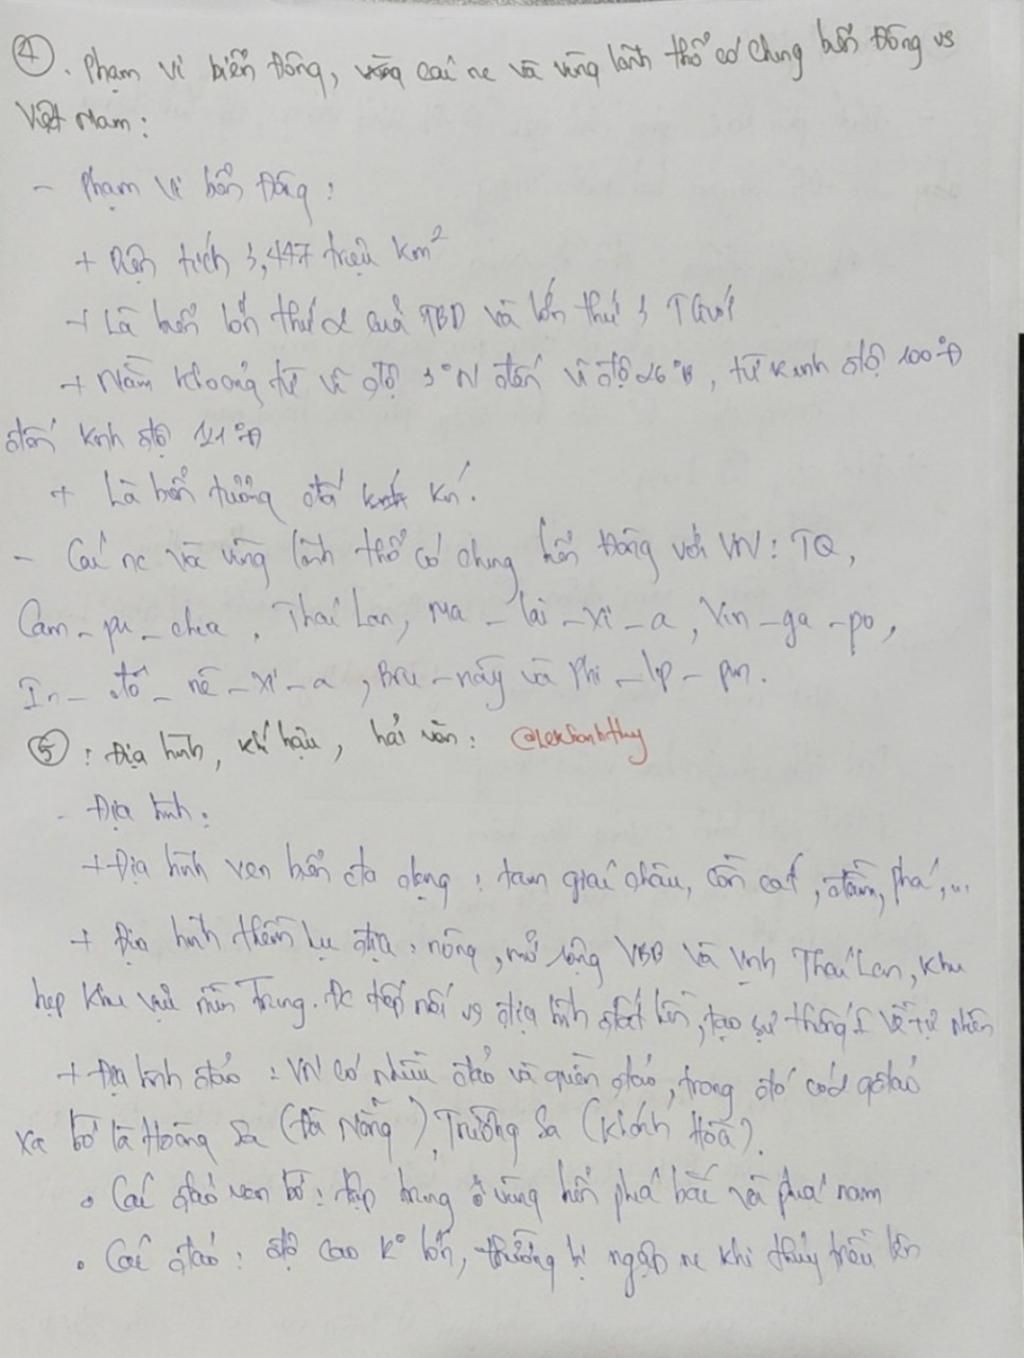 ④. Phạm vi biển Đông, vùng các nc và vùng lãnh thổ có chung biển Đông vs
Việt Nam:
- Phạm vi biển Đông:
+ Diện tích 3,447 triệu km²
+ Là biển lớn thứ 2 của TBD và lớn thứ 3 TGiới
+ Nằm khoảng từ vĩ độ 3°N đến vĩ độ 26°B, từ kinh độ 100°Đ
đến kinh độ 121°Đ
+ Là biển tương đối kính kín.
- Các nc và vùng lãnh thổ có chung biển Đông với VN: TQ,
Cam-pu-chia, Thái Lan, Ma-lai-xi-a, Xin-ga-po,
In-đô-nê-xi-a, Bru-nây và Phi-lip-pin.
⑤: Địa hình, khí hậu, hải văn: @leksanhthuy
- Địa hình:
+ Địa hình ven biển đa dạng: tam giác châu, cồn cát, đầm, phá,...
+ Địa hình thềm lục địa: nông, mở rộng VBB và vịnh Thái Lan, khu
hẹp khu vực miền Trung. Đc tiếp nối vs địa hình đất liền, tạo sự thống I về tự nhiên
+ Địa hình đảo: VN có nhiều đảo và quần đảo, trong đó có 2 qđảo
xa bờ là Hoàng Sa (Đà Nẵng), Trường Sa (Khánh Hòa).
• Các đảo ven bờ: tập trung ở vùng biển phía bắc và phía nam
• Các đảo: độ cao k° lớn, thường bị ngập nc khi thủy triều lên